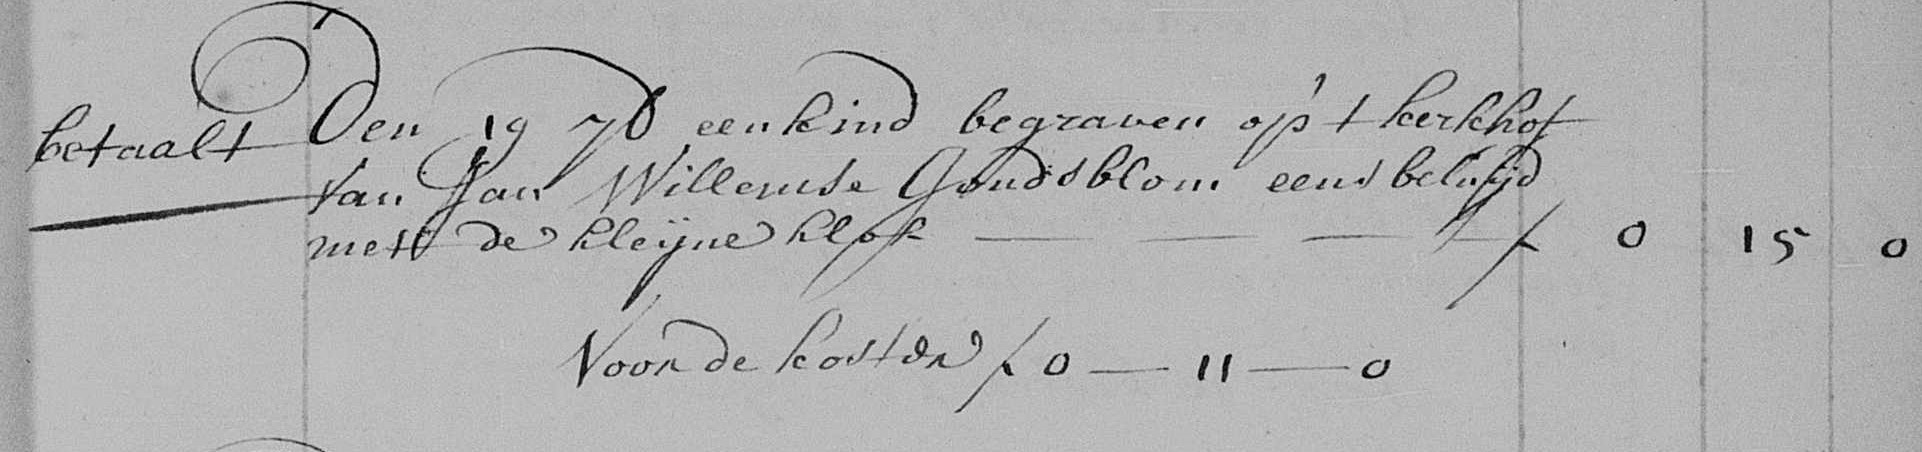 betaalt Den 19 7b een kind begraven op't kerkhof
van Jan Willemse Goudsblom eens beluijd
mett de kleijne klok — — — — ƒ 0 15 0
Voor de koster ƒ 0 — 11 — 0